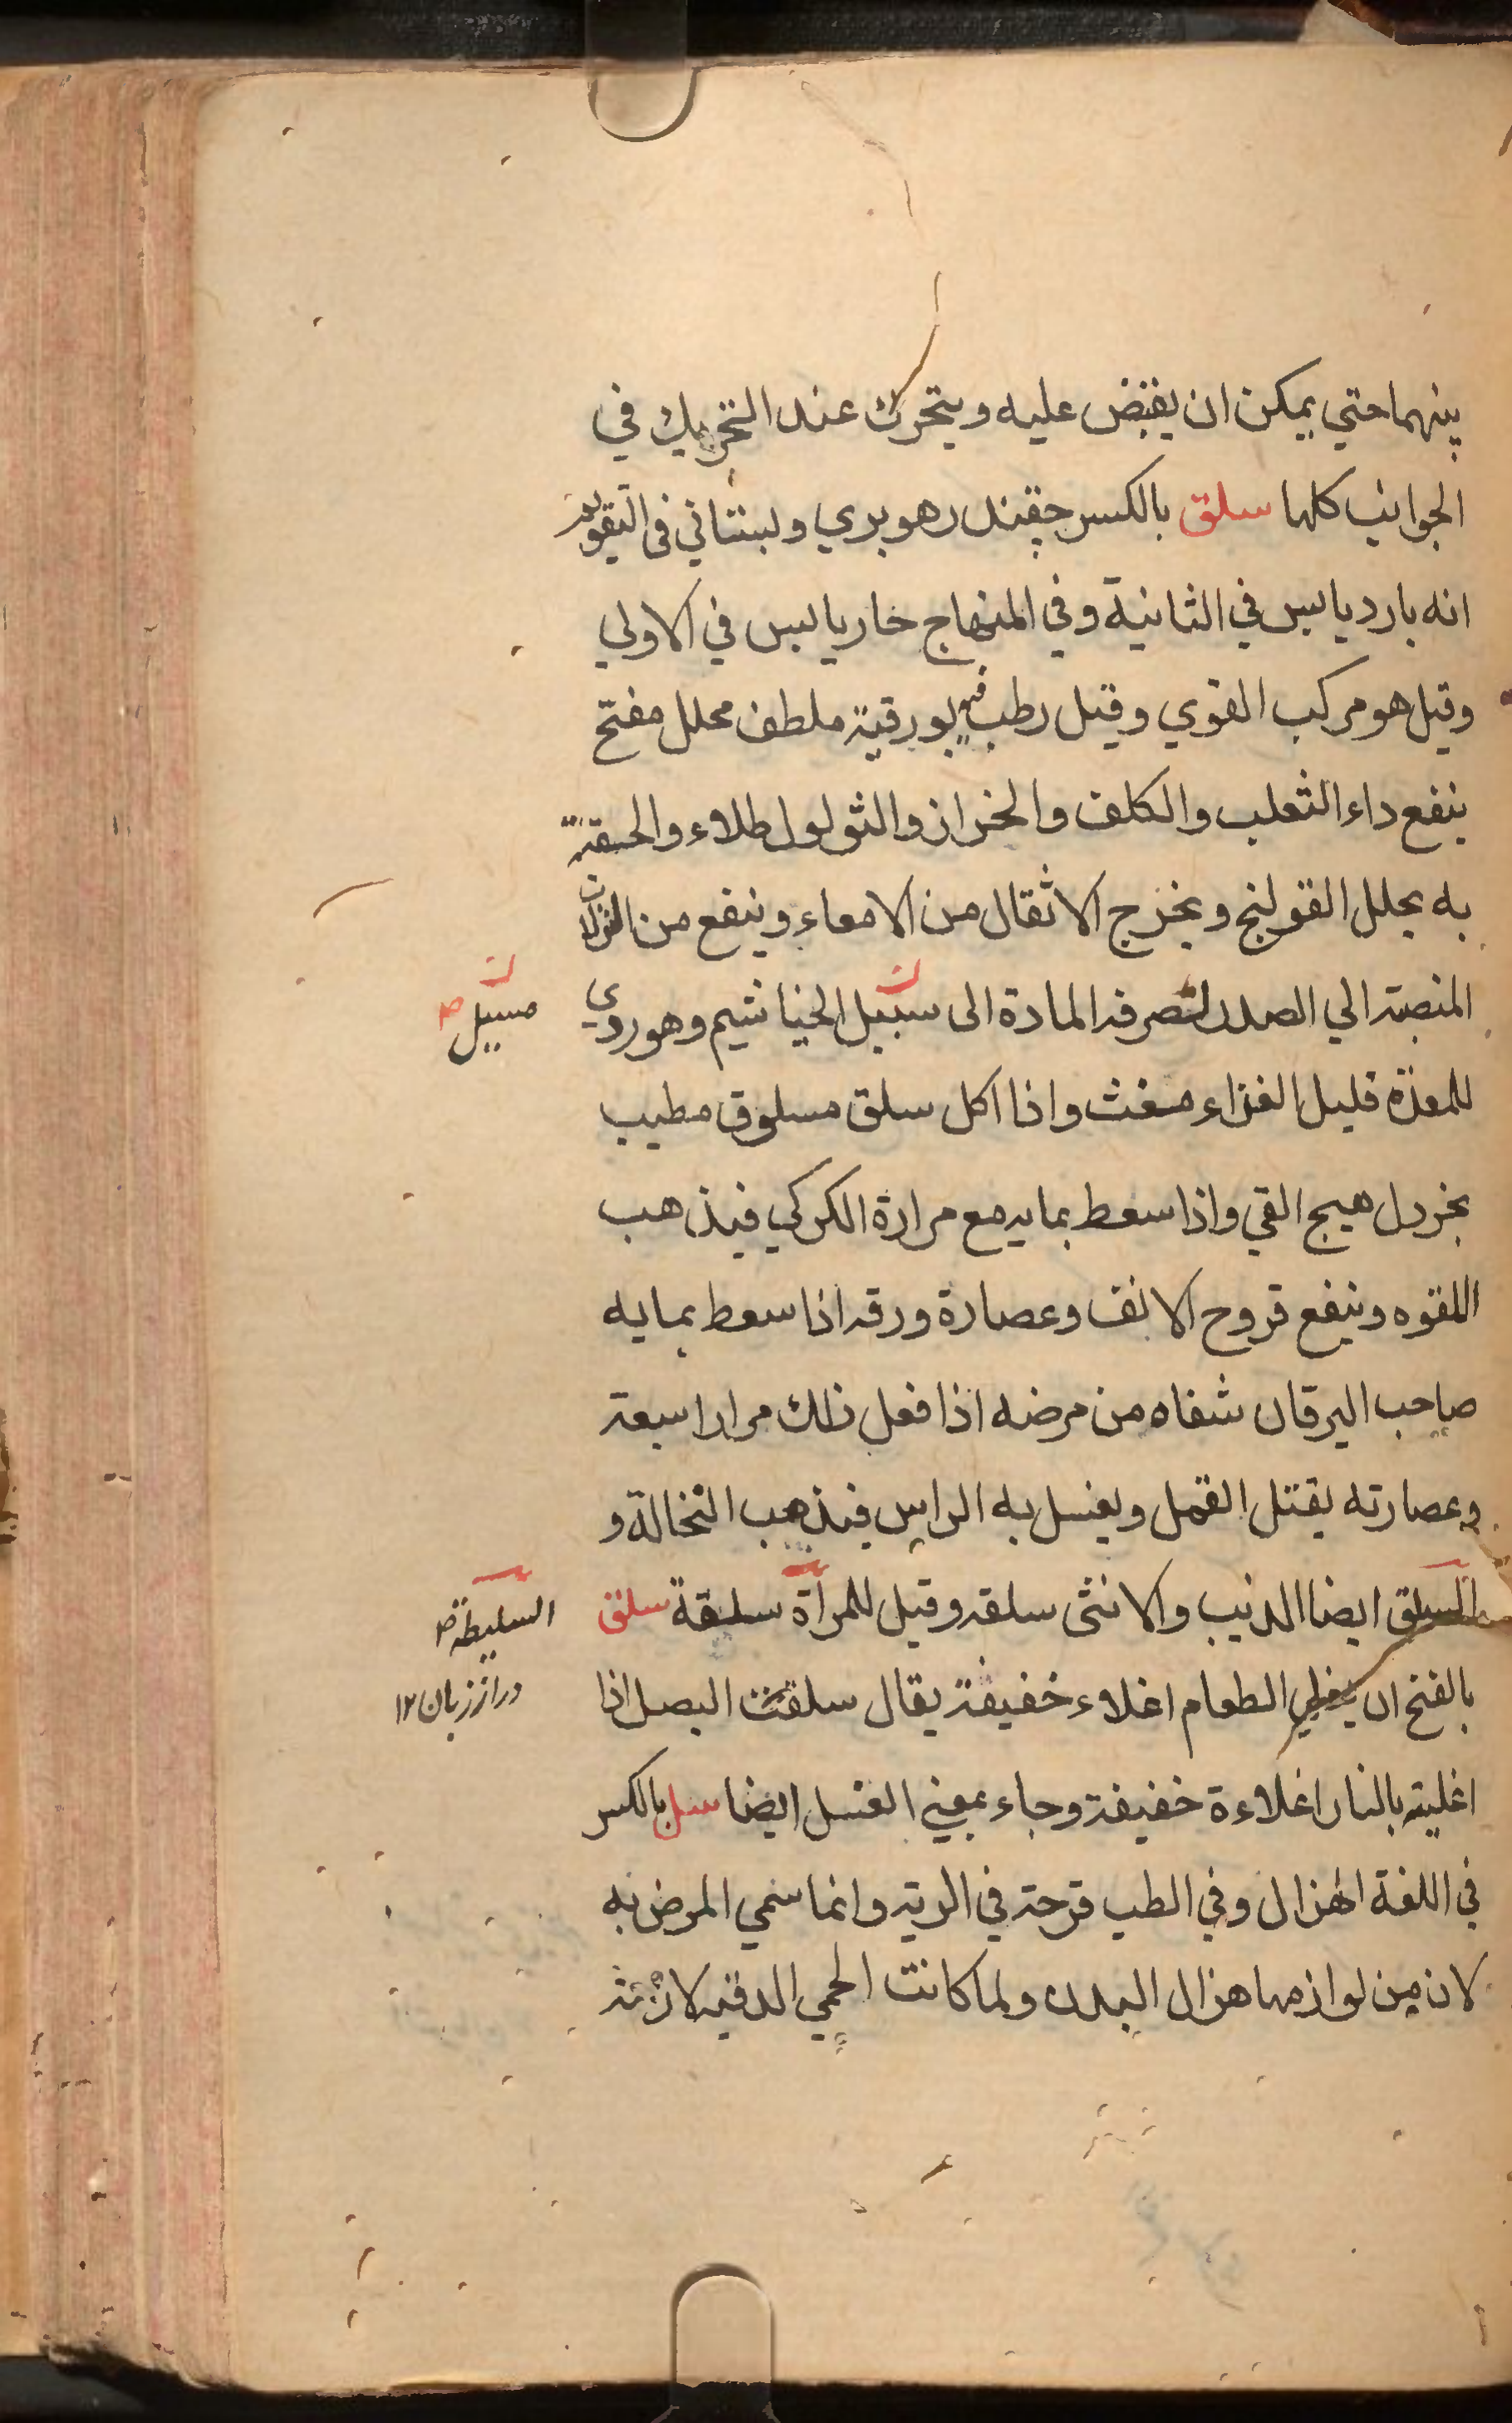 بينهما حتي يمكن ان يقبض عليه ويتحرك عند التحريك في
الجوانب كلها سلق بالكسر چقندر هو بري وبستاني في التقويم
انه بارد يابس في الثانية وفي المنهاج حار يابس في الاولي
وقيل هو مركب القوي وقيل رطب فيه بورقية ملطف محلل مفتح
ينفع داء الثعلب والكلف والحزاز والثولول طلاء والحقنة
به يحلل القولنج ويخرج الاثقال من الامعاء وينفع من النزلات
المنصبة الي الصدر لتصرف المادة الى سبيل الخياشيم وهو ردي
مسيل
للمعدة قليل الغذاء مغث واذا اكل سلق مسلوق مطيب
بخردل هيج القي واذا سعط بمايه مع مرارة الكركي فيذهب
اللقوه وينفع قروح الانف وعصارة ورقه اذا سعط بمايه
صاحب اليرقان شفاه من مرضه اذا فعل ذلك مرارا سبعة
وعصارته يقتل القمل ويغسل به الراس فيذهب النخالة و
السلق ايضا الذيب والانثى سلقه وقيل للمرآة سلقة سلق
السليطة
بالفتح ان يغلي الطعام اغلاء خفيفة يقال سلقت البصل اذا
دراز زبان ١٢
اغليته بالنار اغلاءة خفيفة وجاء بمعني الغسل ايضا سل بالكسر
في اللغة الهزال وفي الطب قرحة في الرية وانما سمي المرض به
لان من لوازمها هزال البدن ولما كانت الحمي الدقيه لازمة